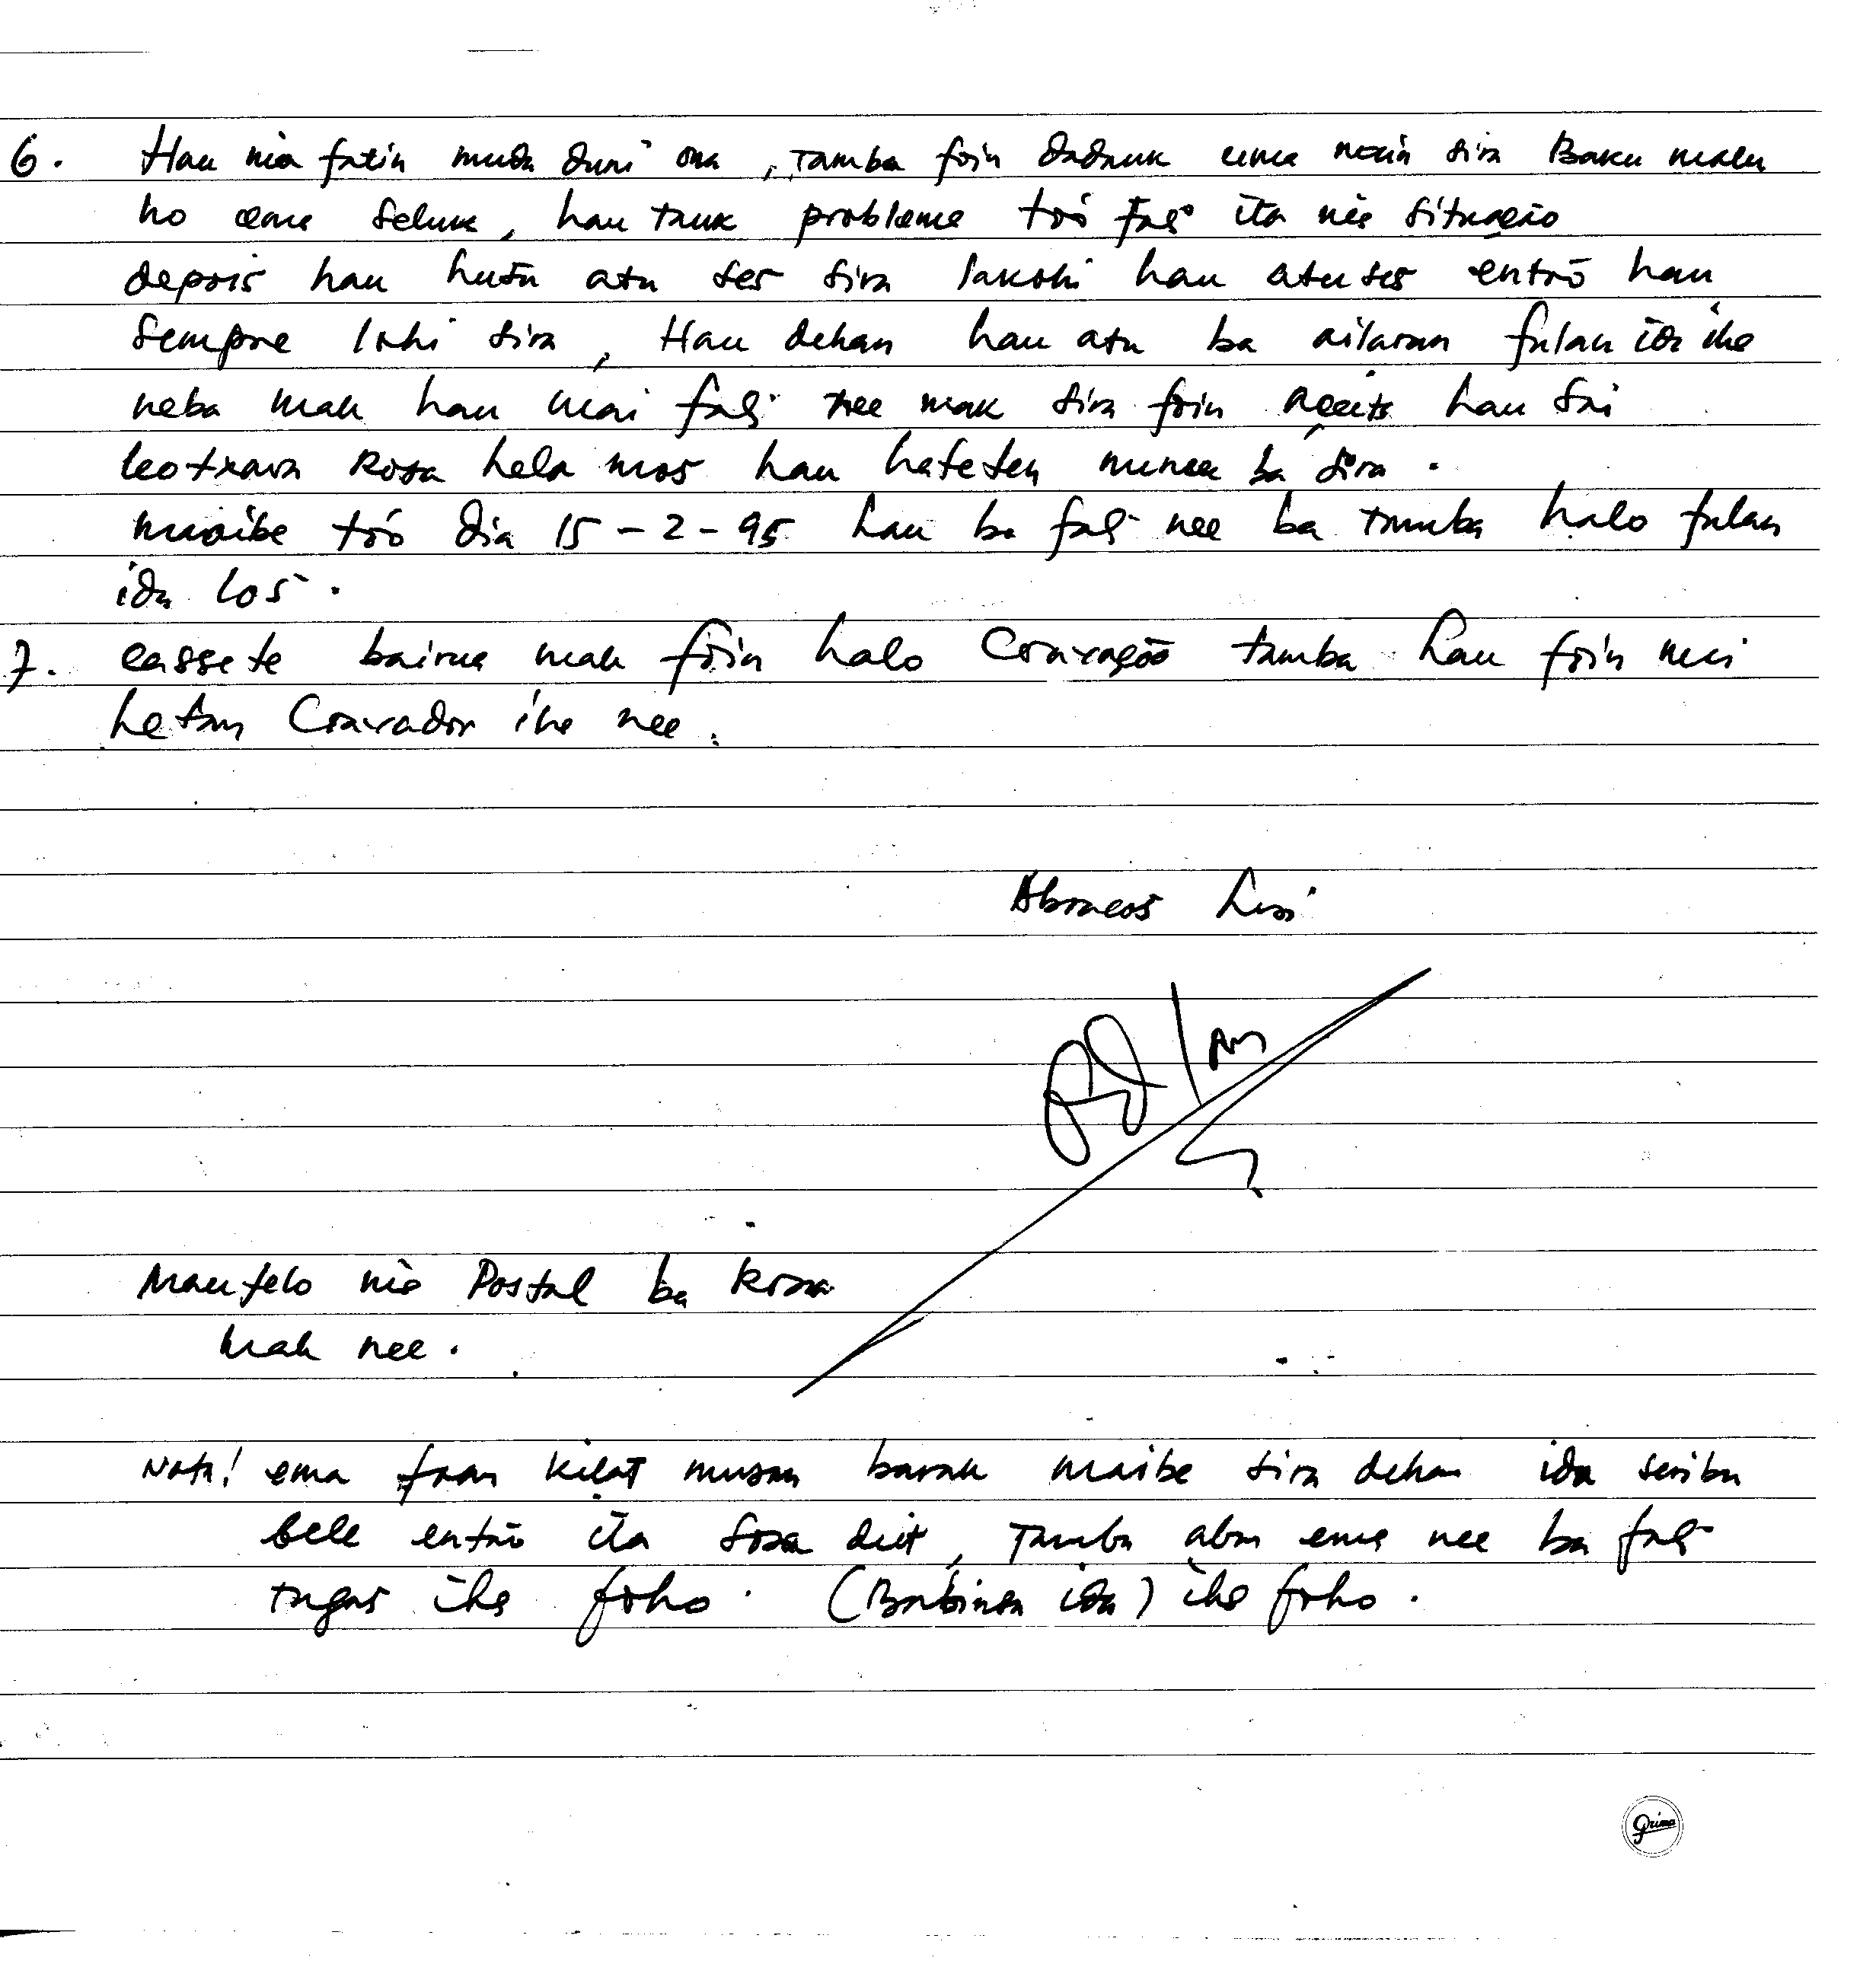 6. Hau nia fatin muda duni ona, Tamba foin dadauk ema nain sira Baku malu
ho ema seluk, hau tauk problema tóo fali ita nia situação
depois hau husu atu ses sira lakohi hau atu ses entõ hau
sempre lohi sira, Hau dehan hau atu ba ailaran fulan ida ihe
neba mak hau mai fali nee mak sira foin aceita hau sai
Rosa hela mos hau hateten nunee ba sira.
maibe tóo dia 15-2-95 hau ba fali nee ba tamba halo fulan
ida los.
7. cassete bairua mak foin halo Gravação tamba hau foin mai
hetan Gravador ihe nee.
Abracos husi
Maufelo nia Postal ba Rosa
mak nee.
Nota! ema faan kilat musan barak maibe sira dehan ida seribu
bele entõ ita sosa deit, Tamba aban ema nee ba fali
tugas ihe foho. (Babinsa ida) ihe foho.
Prima